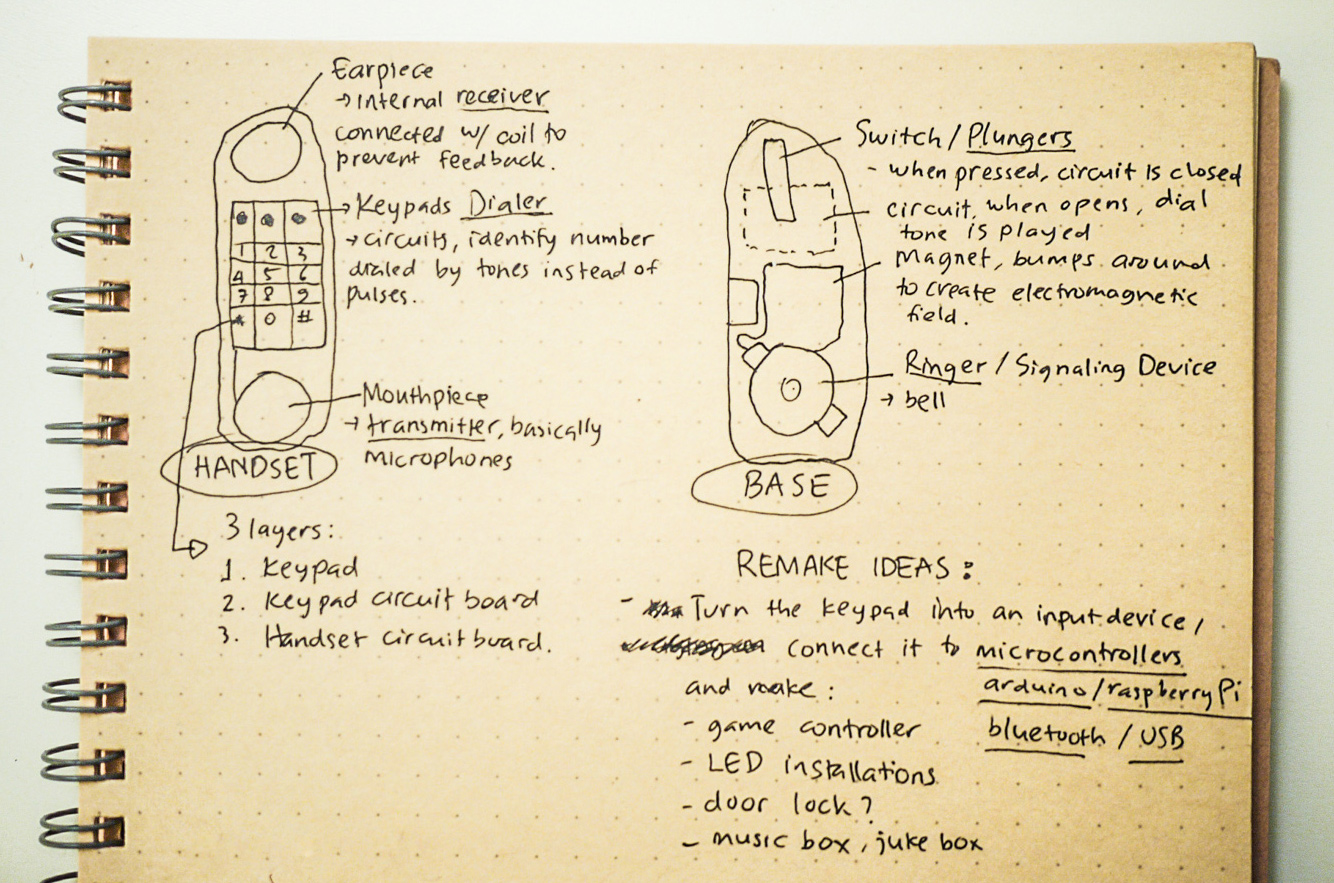 Earpiece
→ Internal receiver
connected w/ coil to
prevent feedback.
→ Keypads Dialer
→ circuits, identify number
dialed by tones instead of
pulses.
1 2 3
4 5 6
7 8 9
* 0 #
Mouthpiece
→ transmitter, basically
microphones
HANDSET
3 layers:
1. Keypad
2. Keypad circuit board
3. Handset circuit board.
Switch / Plungers
- when pressed, circuit is closed
circuit, when opens, dial
tone is played
Magnet, bumps around
to create electromagnetic
field.
Ringer / Signaling Device
→ bell
BASE
REMAKE IDEAS:
- Turn the keypad into an input device,
connect it to microcontrollers
and make: arduino/raspberry Pi
- game controller bluetooth / USB
- LED installations
- door lock?
- music box, juke box